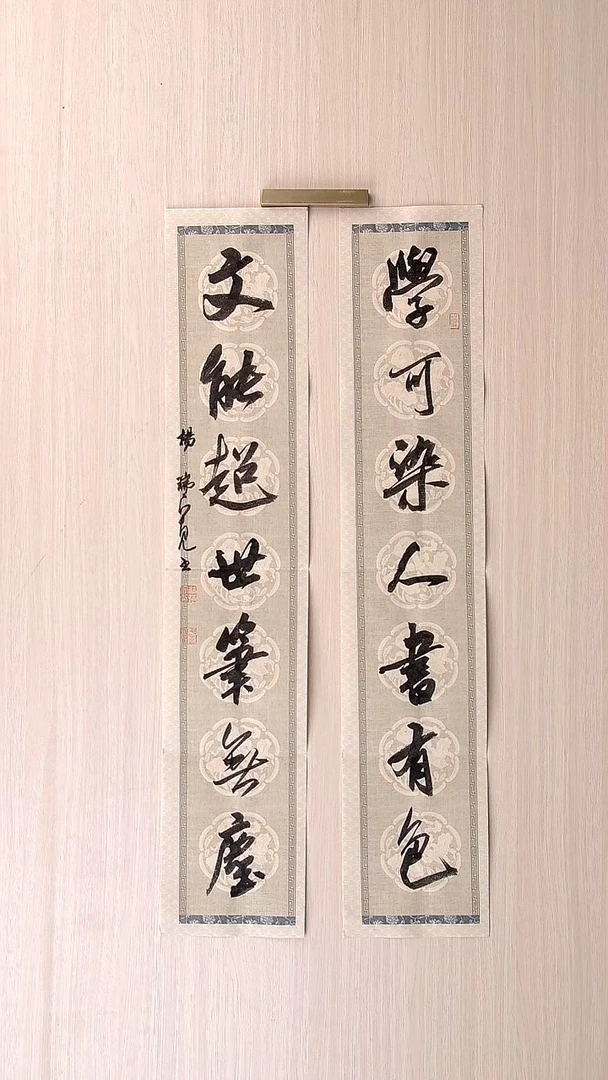 學可染人書有色
文能超世筆無塵
楊瑞